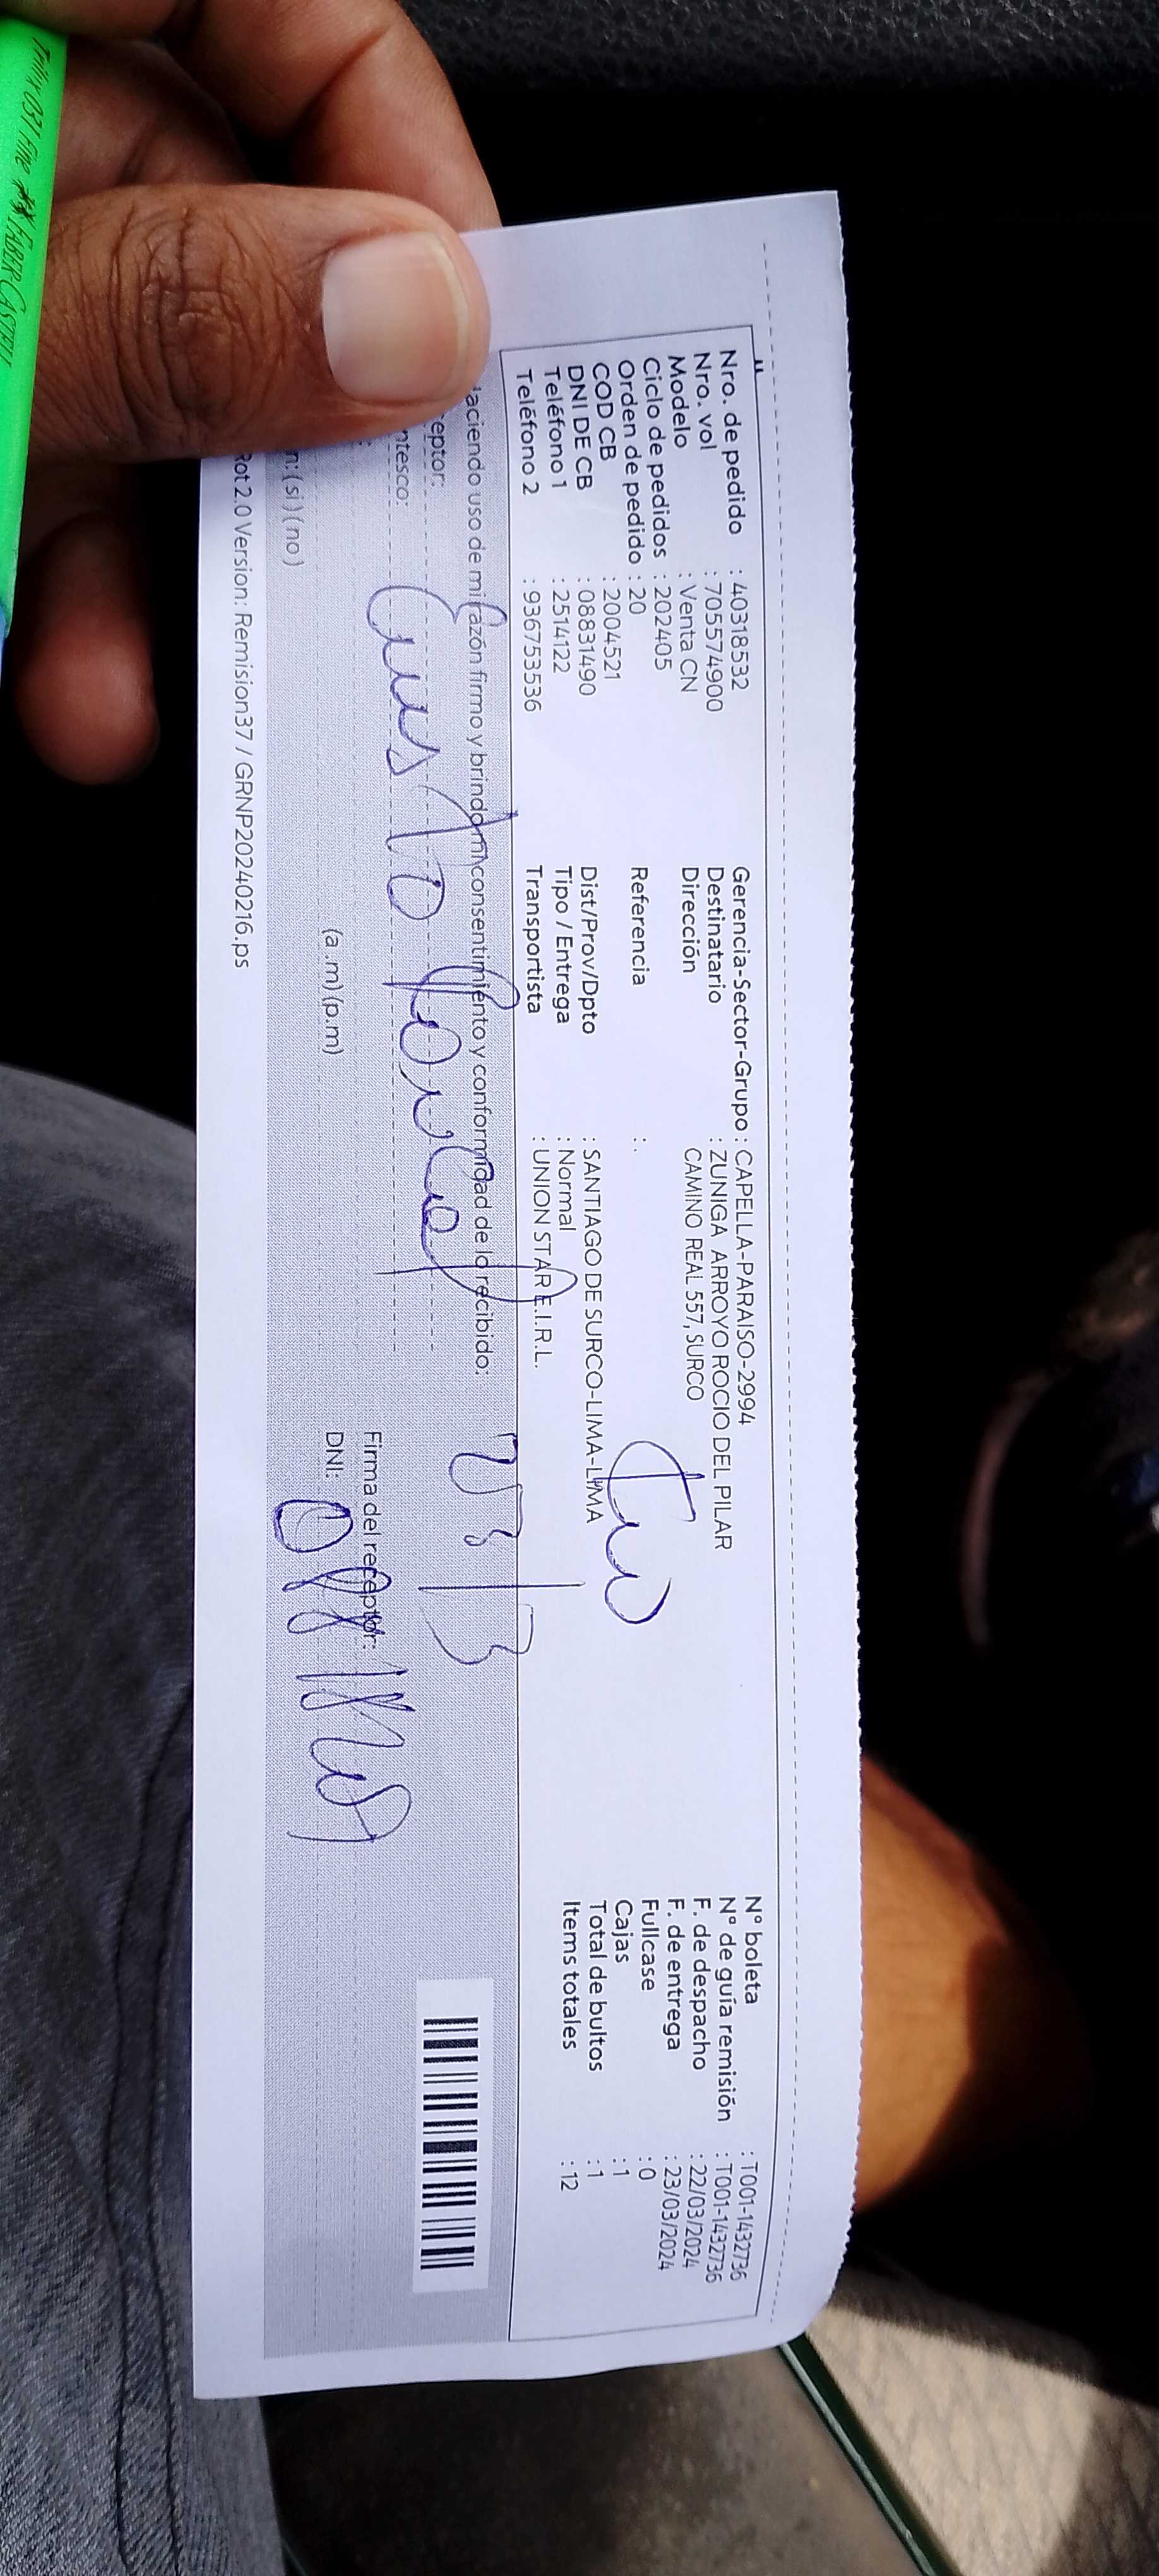 Nro. de pedido : 40318532
Nro. vol : 7055574900
Modelo : Venta CN
Ciclo de pedidos : 202405
Orden de pedido : 20
COD CB : 2004521
DNI DE CB : 08831490
Teléfono 1 : 2514122
Teléfono 2 : 936753536
Gerencia-Sector-Grupo : CAPELLA-PARAISO-2994
Destinatario : ZUNIGA ARROYO ROCIO DEL PILAR
Dirección CAMINO REAL 557, SURCO
Referencia : .
Dist/Prov/Dpto : SANTIAGO DE SURCO-LIMA-LIMA
Tipo / Entrega : Normal
Transportista : UNION STAR E.I.R.L.
N° boleta : T001-1432736
N° de guía remisión : T001-1432736
F. de despacho : 22/03/2024
F. de entrega : 23/03/2024
Fullcase : 0
Cajas : 1
Total de bultos : 1
Items totales : 12
Haciendo uso de mi razón firmo y brindo mi consentimiento y conformidad de lo recibido:
eptor:
ntesco:
(a .m) (p.m)
Firma del receptor:
DNI:
n: ( si ) ( no )
Rot2.0 Version: Remision37 / GRNP20240216.ps
FABER-CASTELL